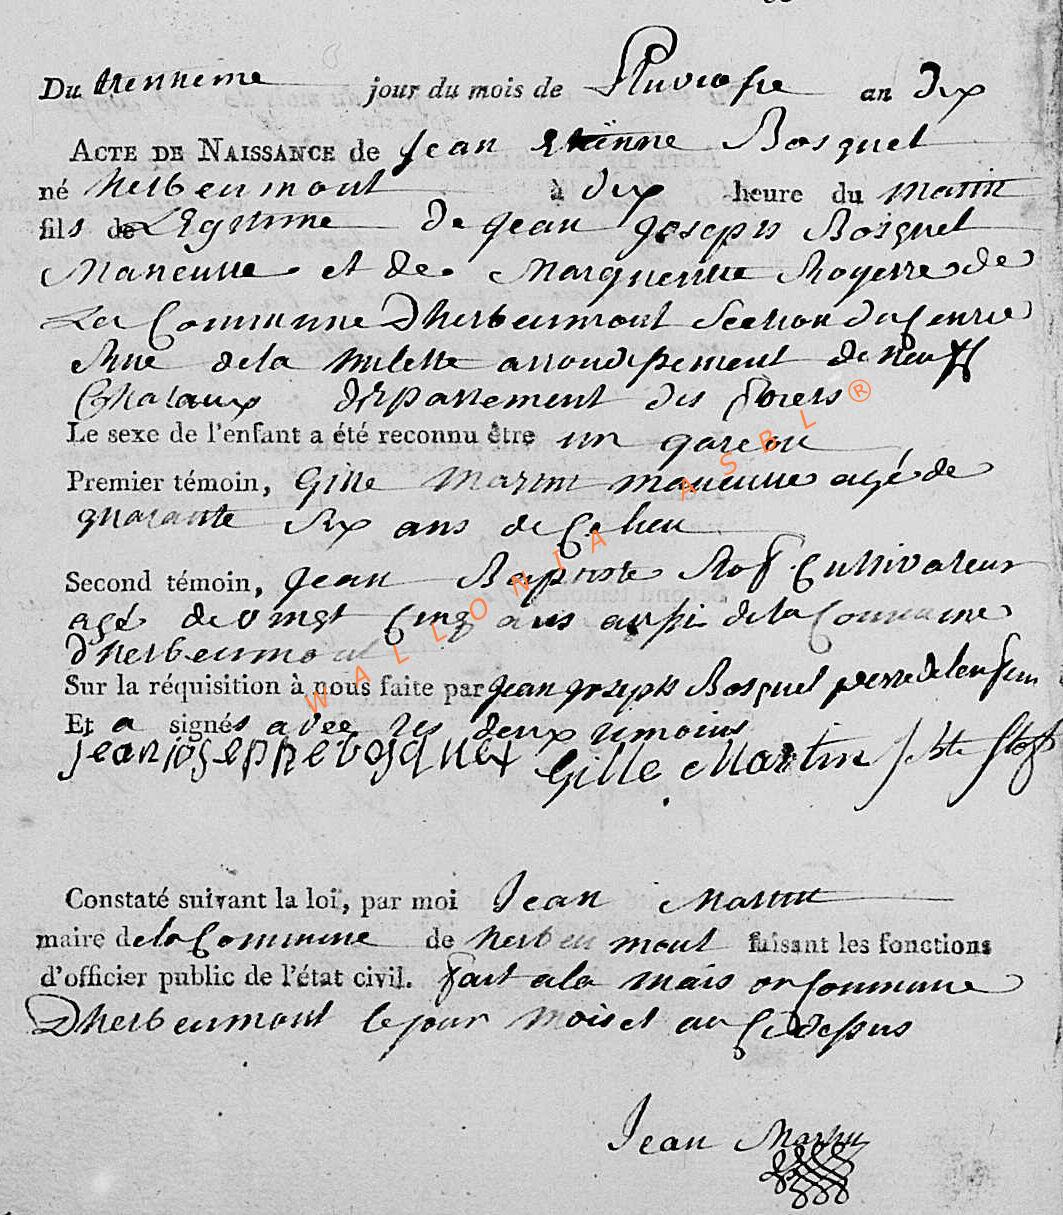 Du trennieme jour du mois de Pluviosse an dix
ACTE DE NAISSANCE de Jean Etienne Bosquet
né herbeumont à dix heure du matin
fils de Legitime De jean joseph Bosquet
Maneuvre et de Margueritte Rogerre de
La Commune Dherbeumont Section
de la arrondissement de neuff
Chataux département des forets
Le sexe de l'enfant a été reconnu être un garcon
Premier témoin, Gille Martin maneuvre agé de
quarante six ans de Ce lieu
Second témoin, jean Baptiste Stof Cultivateur
agé de vingt Cinq ans aussi de la Commune
dherbeumont
Sur la réquisition à nous faite par jean joseph Bosquet perre de lenfan
Et a signés avec les deux temoins
jean josepphe bosquet Gille Martin j bte Stoff
Constaté suivant la loi, par moi Jean Martin
maire de la Commune de herbeumont faisant les fonctions
d'officier public de l'état civil. fait a la maison Commune
Dherbeumont le jour mois et an Cidessus
Jean Martin
WALLONIA ASBL ®